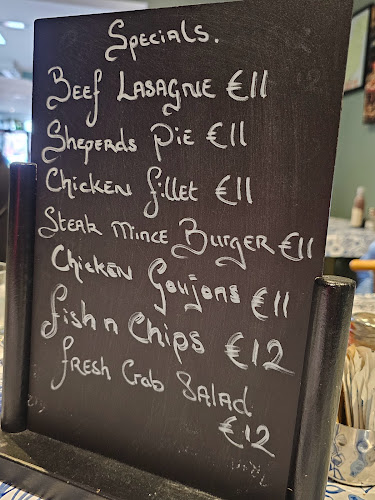 Specials.
Beef Lasagne €11
Sheperds Pie €11
Chicken fillet €11
Steak Mince Burger €11
Chicken Goujons €11
fish n Chips €12
fresh Crab Salad
€12